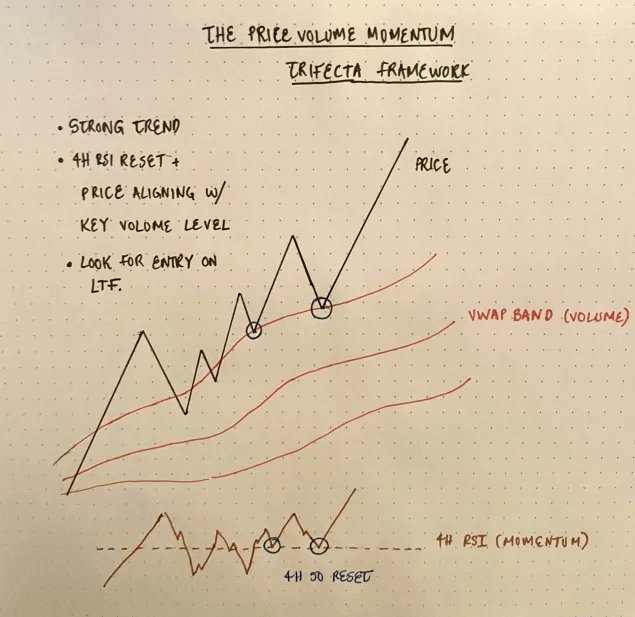 THE PRICE VOLUME MOMENTUM
TRIFECTA FRAMEWORK
• STRONG TREND
• 4H RSI RESET +
PRICE ALIGNING W/
KEY VOLUME LEVEL
• LOOK FOR ENTRY ON
LTF.
PRICE
VWAP BAND (VOLUME)
4H RSI (MOMENTUM)
4H 50 RESET